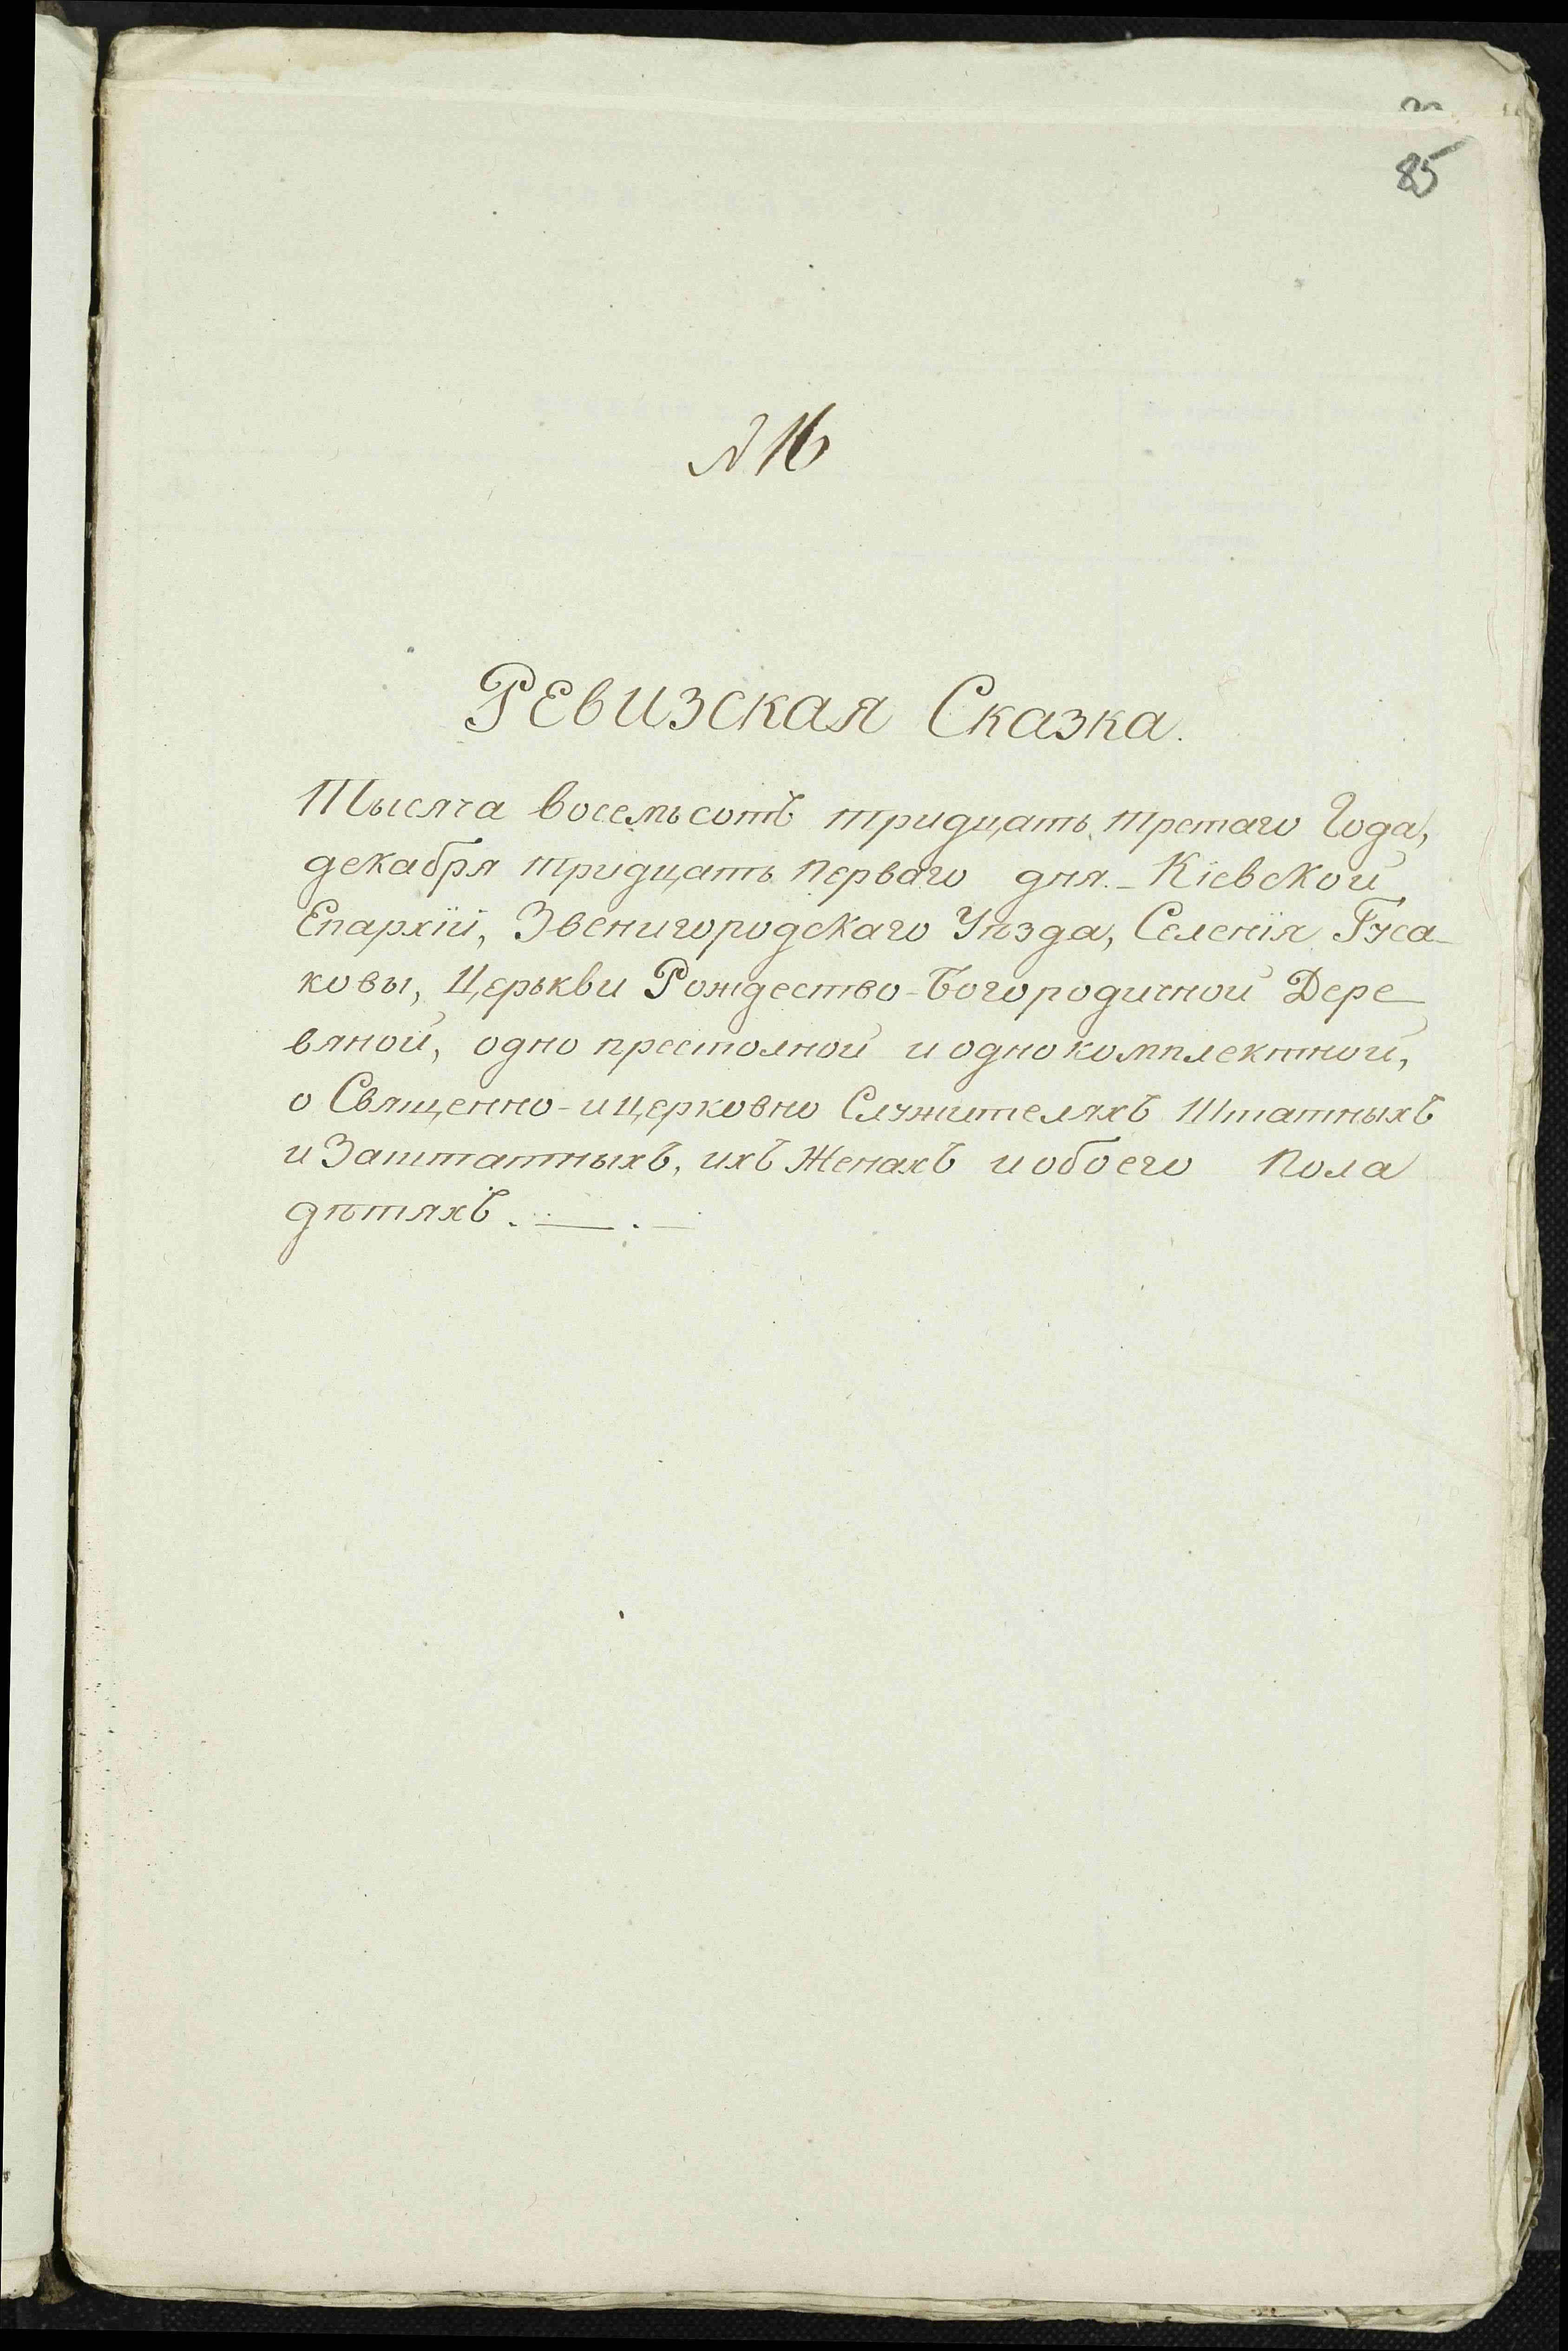 85
№ 16
Ревизская Сказка.
Тысяча восемьсотъ тридцать третаго Года,
декабря тридцать перваго дня. - Кіевской
Епархіи, Звенигородскаго Уѣзда, Селенія Гуса-
ковы, Церькви Рождество-Богородичной Дере-
вяной, одно престолной и однокомплектной,
о Священно- и церковно Служителяхъ Штатныхъ
и Заштатныхъ, ихъ Женахъ и обоего Пола
дѣтяхъ. — . —